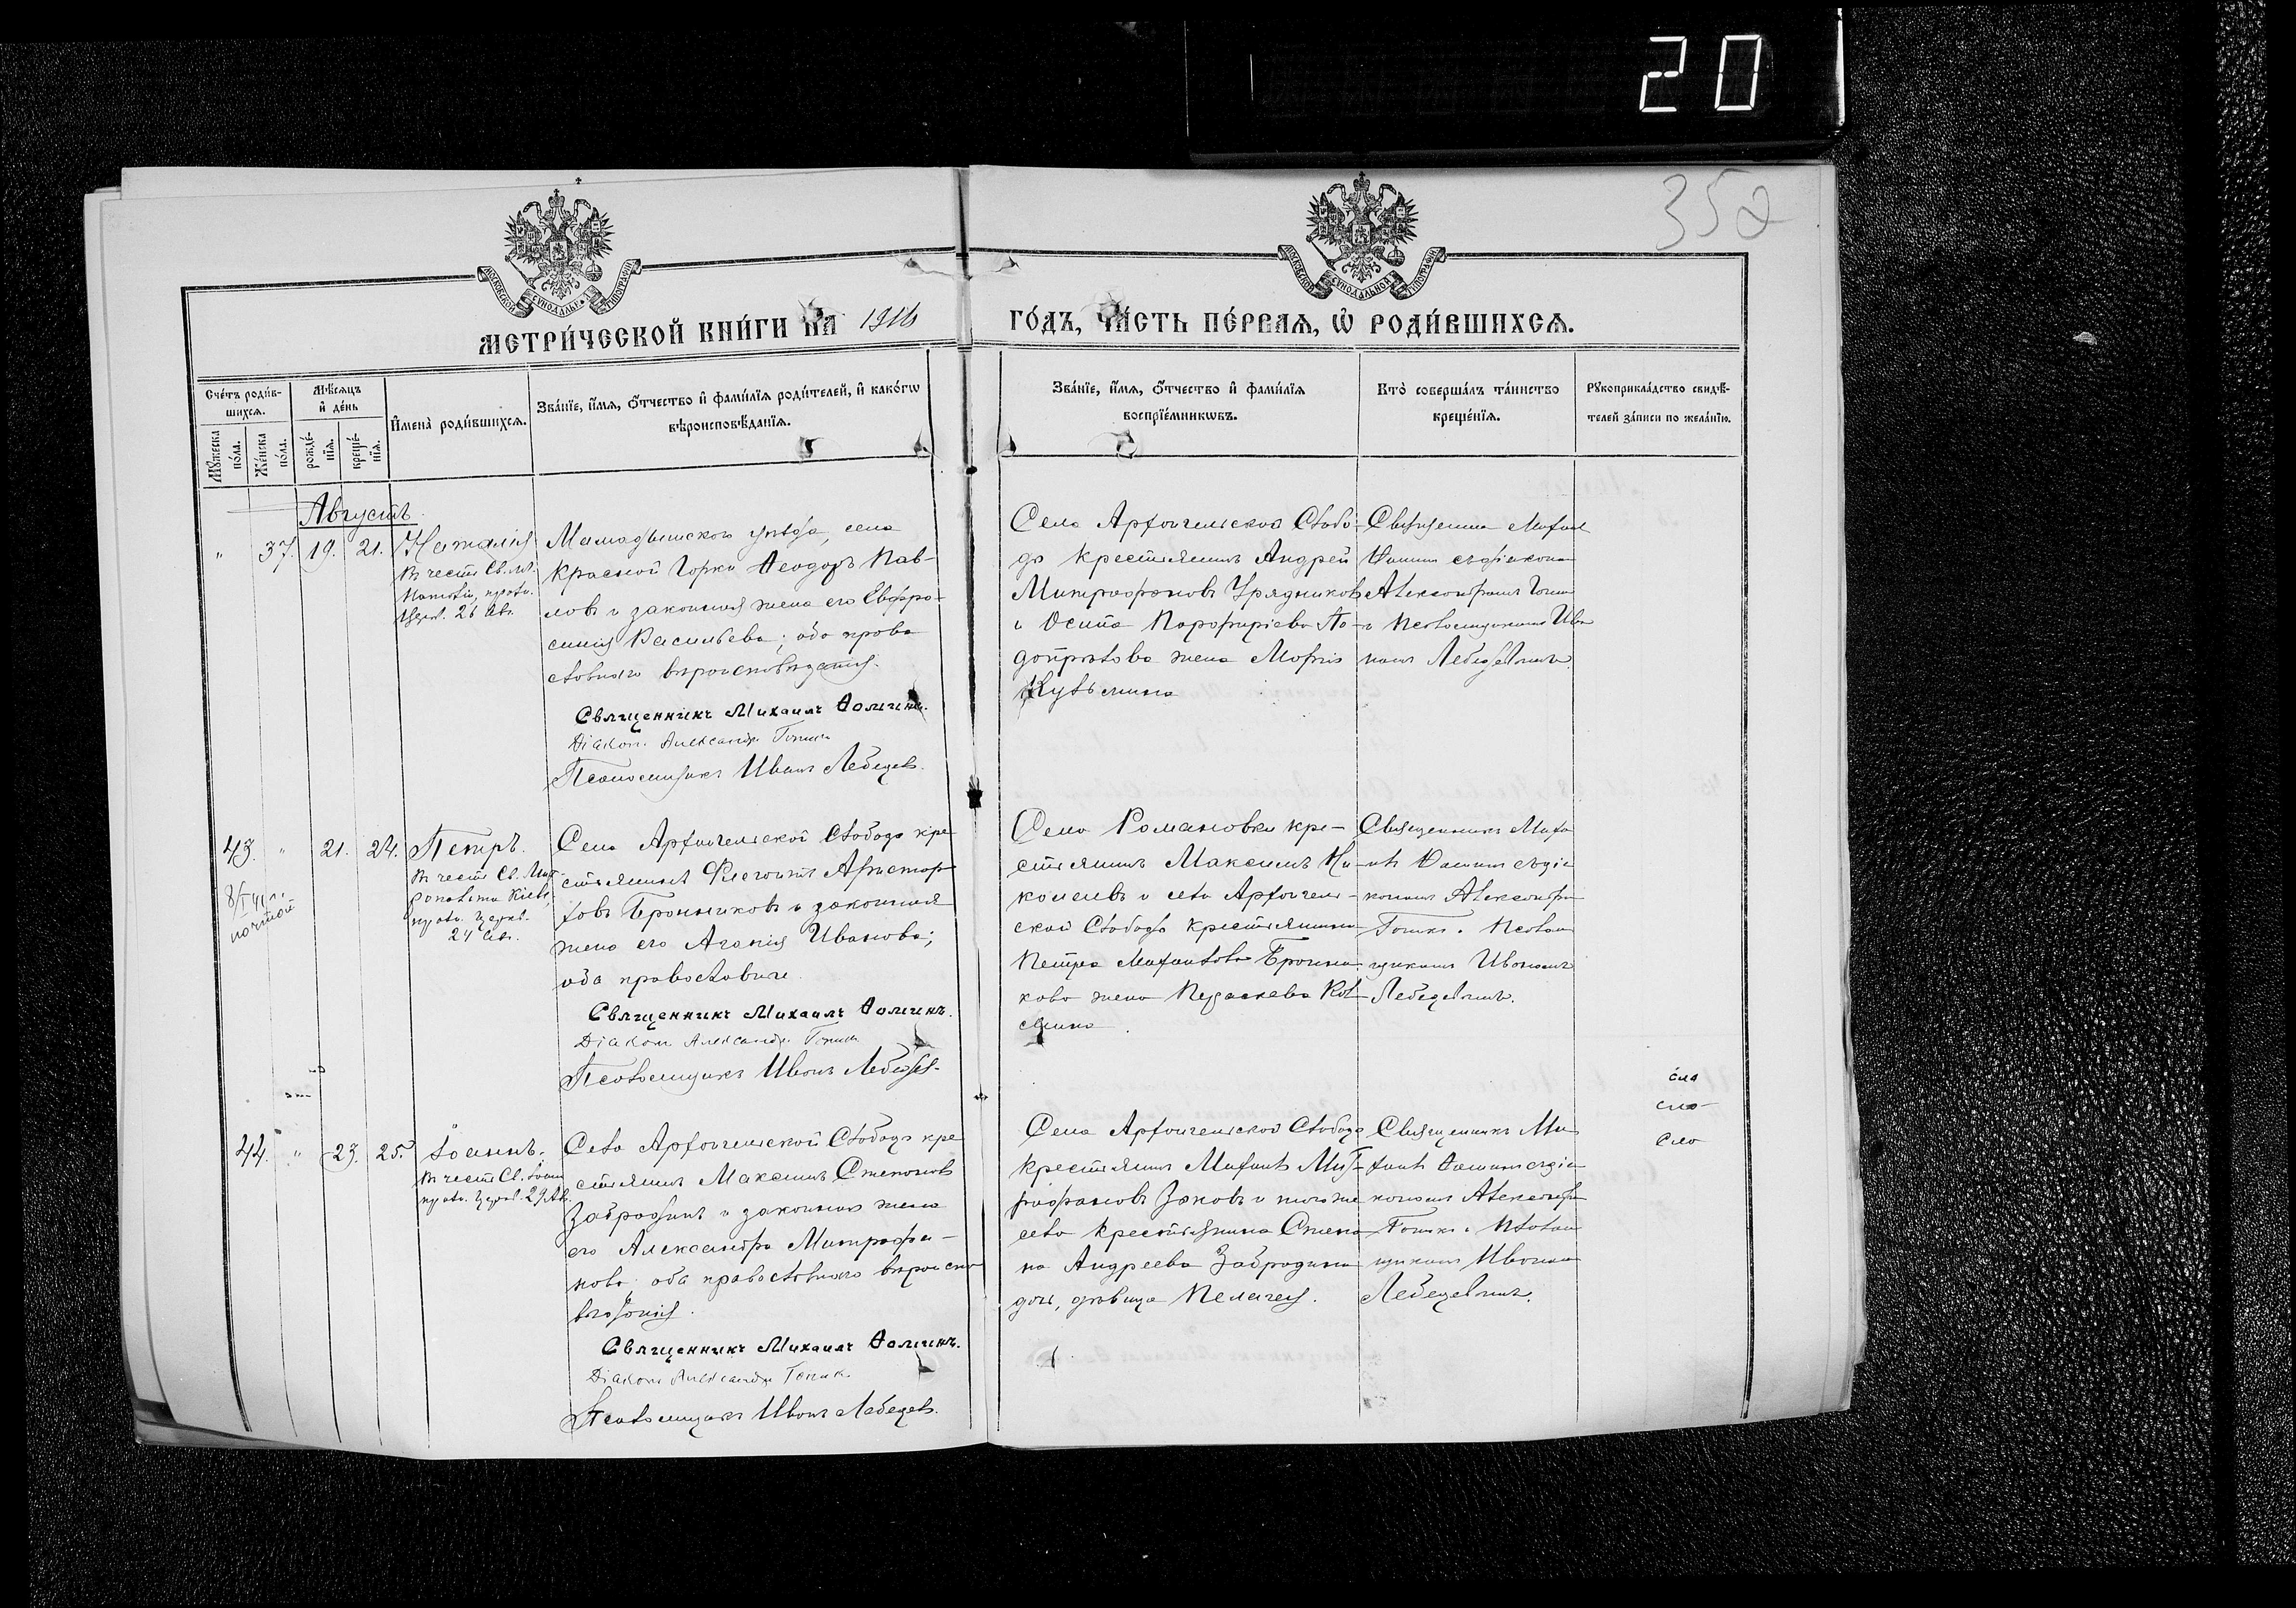 20
352
МОСКОВСКОЙ СУНОДАЛЬНОЙ ТИПОГРАФІИ
МОСКОВСКОЙ СУНОДАЛЬНОЙ ТИПОГРАФІИ
МЕТРИ́ЧЕСКОЙ КНИ́ГИ НА 1916
ГО́ДЪ, ЧА́СТЬ ПЕ́РВАЯ, Ѡ РОДИ́ВШИХСЯ.
Сче́тъ роди́в-
шихся.
Мѣ́сяцъ
и҆ де́нь
Мꙋжеска
по́ла.
Же́нска
по́ла.
рожде́-
нїя.
креще́-
нїя.
И҆мена̀ роди́вшихся.
Зва́нїе, и҆́мя, ѻ҆́тчество и҆ фами́лїя роди́телей, и҆ како́гѡ
вѣроисповѣ́данїя.
Зва́нїе, и҆́мя, ѻ҆́тчество и҆ фами́лїя
воспрїе́мникѡвъ.
Кто̀ соверша́лъ та́инство
креще́нїя.
Рꙋкоприкла́дство свидѣ́-
телей за́писи по жела́нїю.
Августъ.
" 37. 19. 21. Наталія
въ честь Св. мч.
Наталіи, празд.
Церк. 26 Авг.
Мамадышскаго уѣзда, села
Красной Горки Ѳеодоръ Пав-
ловъ и законная жена его Евфро-
синія Васильева; оба право
славнаго вѣроисповѣданія.
Священникъ Михаилъ Ѳоминъ.
Діаконъ Александръ
Псаломщикъ Иванъ Лебедевъ.
Села Архангельской Слобо-
ды крестьянинъ Андрей
Митрофановъ Урядниковъ
и Осипа Порфиріева По-
жена Марія
Кузьмина
Священник Михаил
Ѳомин съ діакона
Александромъ
и Псаломщикомъ Ива
номъ Лебедевымъ.
43. " 21. 24. Петръ.
въ честь Св. Мит
рополита Кіев,
празд. Церк.
24 Авг.
8/I 41 г.
Села Архангельской Слободы кре
стьянинъ Флегонтъ Аристар
ховъ Бронниковъ и законная
жена его Агапія Иванова;
оба православные.
Священникъ Михаилъ Ѳоминъ.
Діаконъ Александръ
Псаломщикъ Иванъ Лебедевъ.
Села Романовки кре-
стьянинъ Максимъ Ни-
колаевъ и села Архангель-
ской Слободы крестьянина
Петра Михайлова Бронни
кова жена Параскева Коз
мина.
Священникъ Миха
илъ Ѳоминъ съ діа
кономъ Александро
и Псалом
щикомъ Иваномъ
Лебедевымъ.
44. " 23. 25. Іоаннъ.
въ честь Св. Іоан
празд. Церк. 29 Ав.
Села Архангельской Слободы кре
стьянинъ Максимъ Степановъ
Забродинъ и законная жена
его Александра Митрофа-
нова; оба православнаго вѣроиспо
вѣданія.
Священникъ Михаилъ Ѳоминъ.
Діаконъ Александръ
Псаломщикъ Иванъ Лебедевъ.
Села Архангельской Слободы
крестьянинъ Михаилъ Мит-
рофановъ и того же
села крестьянина Степа
на Андреева Забродина
дочь, дѣвица Пелагея.
Священникъ Ми
хаилъ Ѳоминъ съ діа
кономъ Александро
и Псалом
щикомъ Иваном
Лебедевымъ.